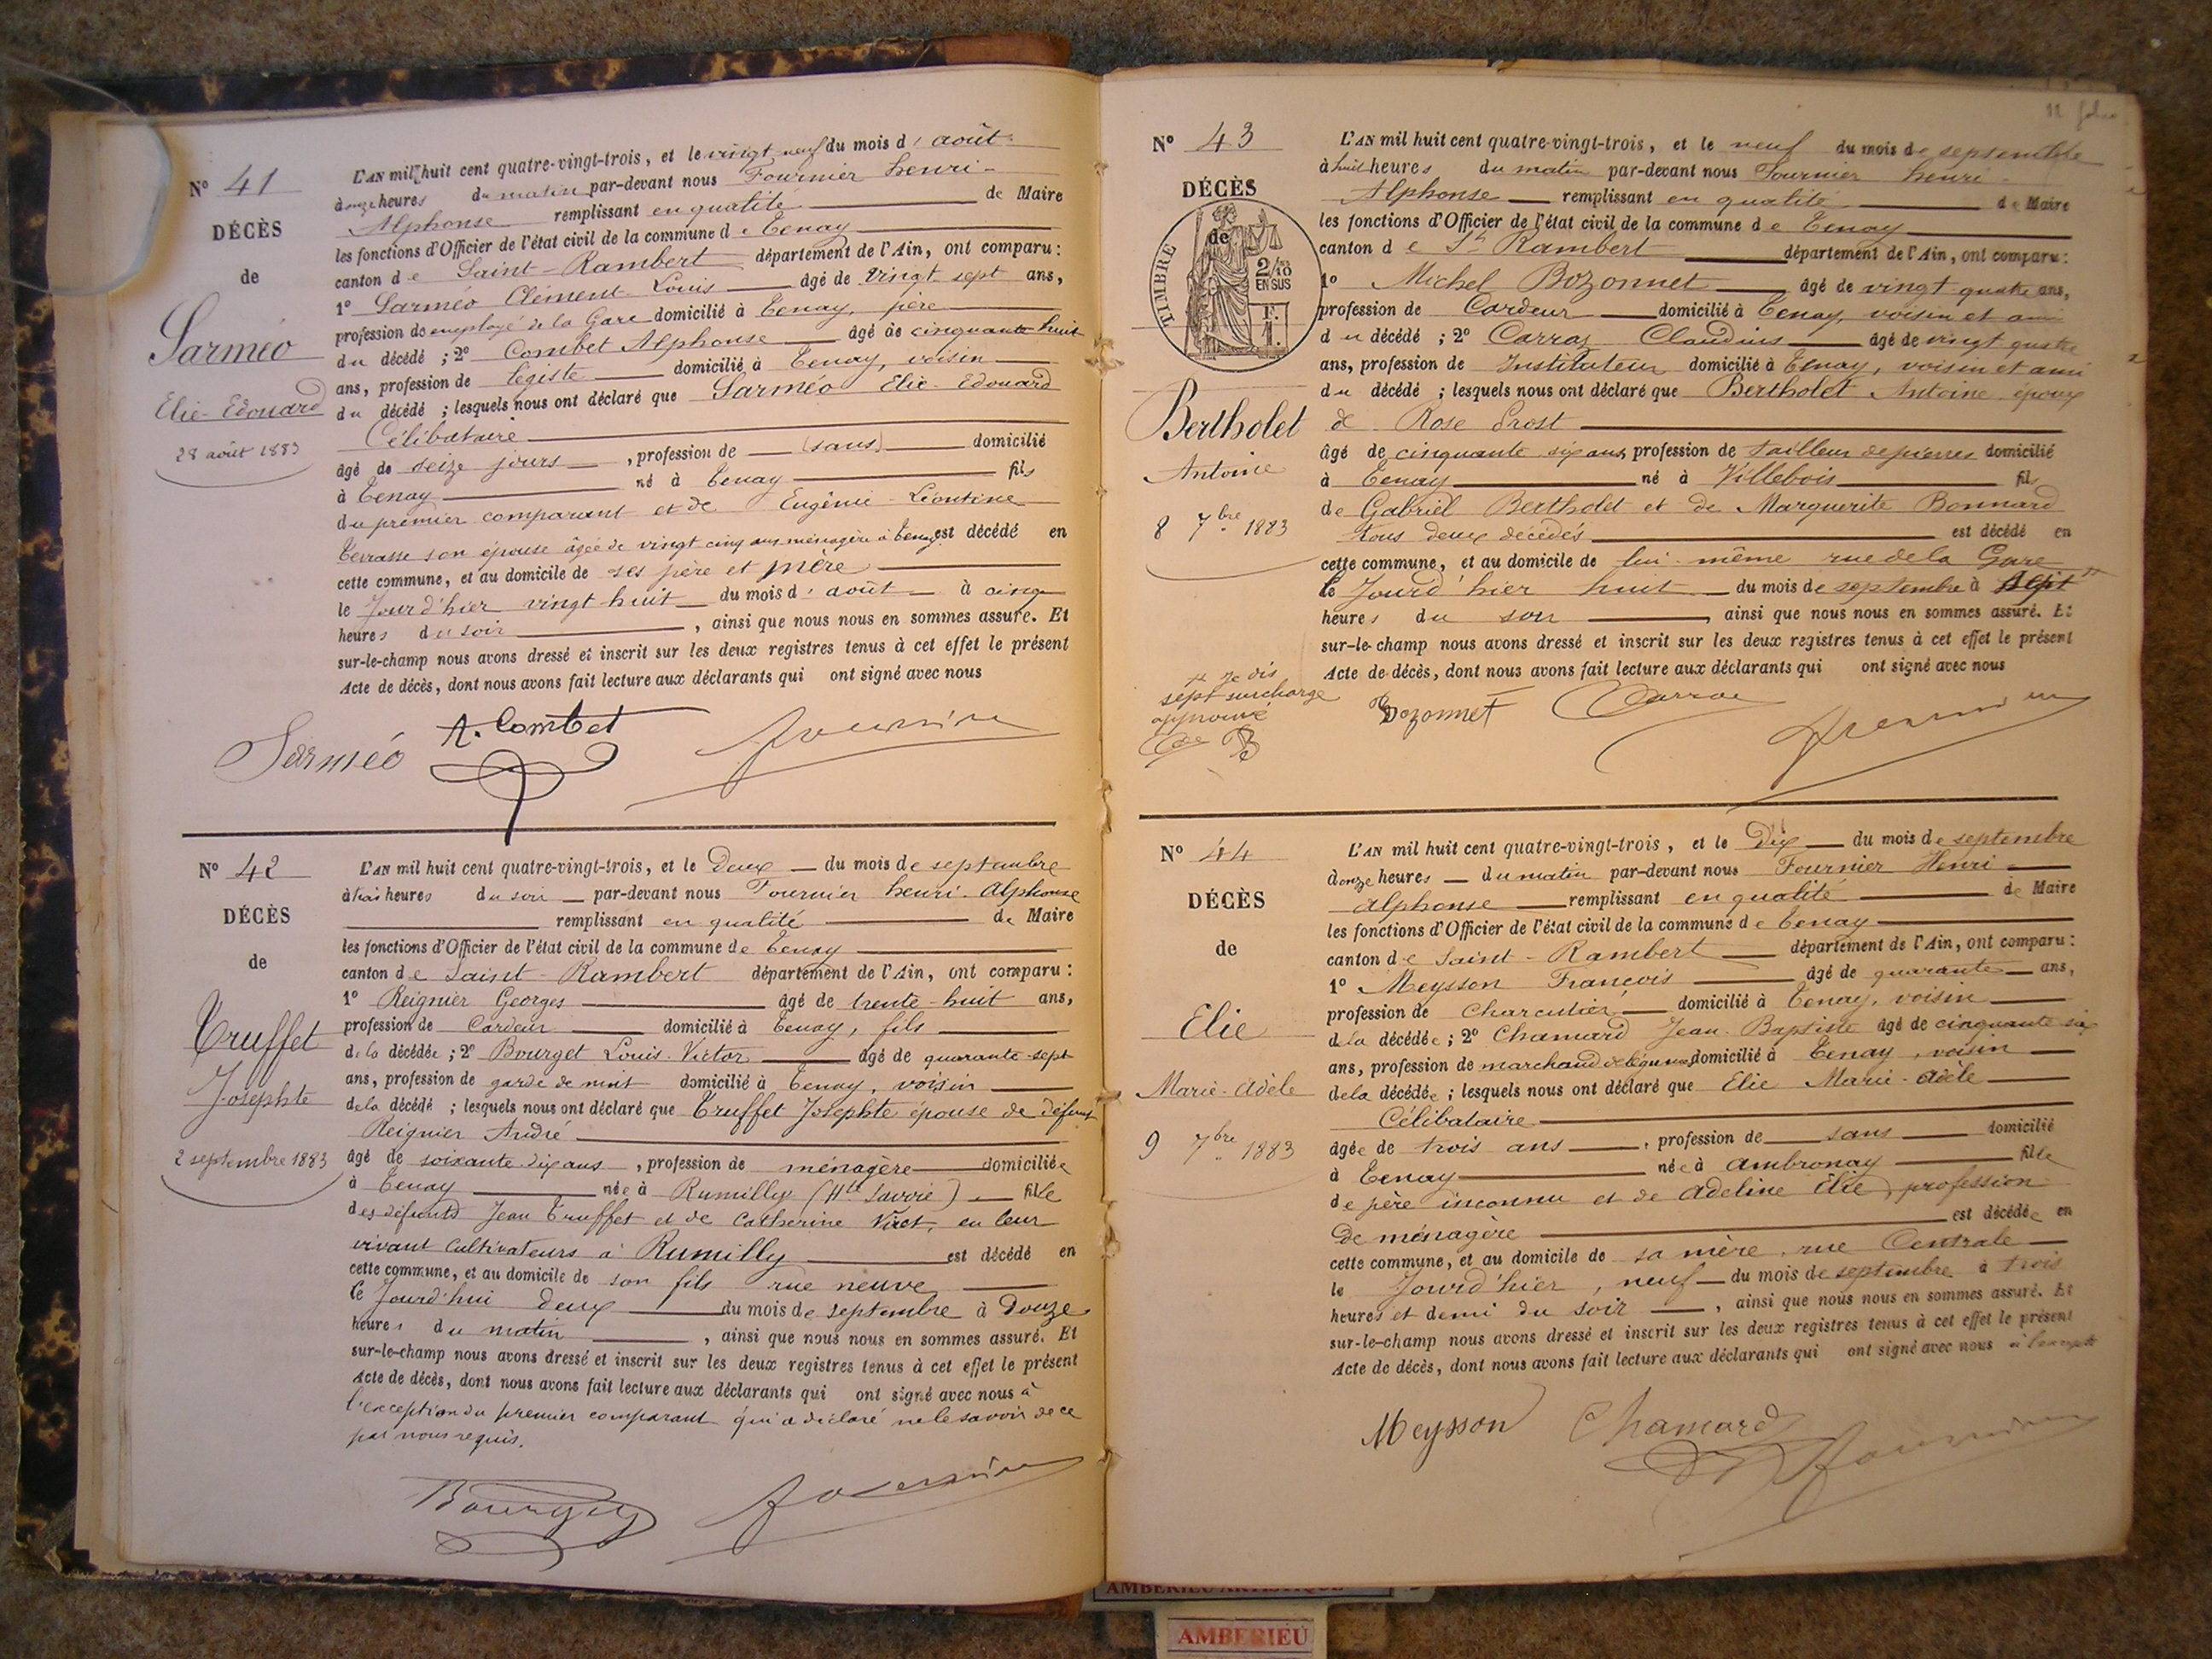 N° 41
DÉCÈS
de
Sarméo
Elie-Edouard
28 août 1883
L'AN mil huit cent quatre-vingt-trois, et le vingt neuf du mois d'août
à onze heures du matin par-devant nous Fournier henri
Alphonse remplissant en qualité de Maire
les fonctions d'Officier de l'état civil de la commune de Tenay
canton de Saint-Rambert département de l'Ain, ont comparu :
1° Sarméo Clément Louis âgé de vingt sept ans,
profession de employé de la Gare domicilié à Tenay, père
du décédé ; 2° Combet Alphonse âgé de cinquante huit
ans, profession de légiste domicilié à Tenay, voisin
du décédé ; lesquels nous ont déclaré que Sarméo Elie-Edouard
Célibataire
âgé de seize jours, profession de (sans) domicilié
à Tenay né à Tenay fils
du premier comparant et de Eugénie Léontine
Terrasse son épouse âgée de vingt cinq ans ménagère à Tenay est décédé en
cette commune, et au domicile de ses père et mère
le Jourd'hier vingt huit du mois d'août à cinq
heures du soir, ainsi que nous nous en sommes assuré. Et
sur-le-champ nous avons dressé et inscrit sur les deux registres tenus à cet effet le présent
Acte de décès, dont nous avons fait lecture aux déclarants qui ont signé avec nous
Sarméo A. Combet Fournier
N° 42
DÉCÈS
de
Truffet
Josephte
2 septembre 1883
L'AN mil huit cent quatre-vingt-trois, et le Deux du mois de septembre
à trois heures du soir par-devant nous Fournier henri-Alphonse
remplissant en qualité de Maire
les fonctions d'Officier de l'état civil de la commune de Tenay
canton de Saint-Rambert département de l'Ain, ont comparu :
1° Reignier Georges âgé de trente-huit ans,
profession de Cardeur domicilié à Tenay, fils
de la décédée ; 2° Bourget Louis-Victor âgé de quarante-sept
ans, profession de garde de nuit domicilié à Tenay, voisin
de la décédé ; lesquels nous ont déclaré que Truffet Josephte épouse de défunt
Reignier André
âgé de soixante dix ans, profession de ménagère domiciliée
à Tenay née à Rumilly (Hte Savoie) fille
des défunts Jean Truffet et de Catherine en leur
vivant Cultivateurs à Rumilly est décédé en
cette commune, et au domicile de son fils rue neuve
le Jourd'hui Deux du mois de septembre à Douze
heures du matin, ainsi que nous nous en sommes assuré. Et
sur-le-champ nous avons dressé et inscrit sur les deux registres tenus à cet effet le présent
Acte de décès, dont nous avons fait lecture aux déclarants qui ont signé avec nous à
l'exception du premier comparant qui a déclaré ne le savoir de ce
par nous requis.
Bourget Fournier
N° 43
DÉCÈS
TIMBRE
de
2/10
EN SUS
Bertholet
Antoine
8 7bre 1883
L'AN mil huit cent quatre-vingt-trois, et le neuf du mois de septembre
à huit heures du matin par-devant nous Fournier henri
Alphonse remplissant en qualité de Maire
les fonctions d'Officier de l'état civil de la commune de Tenay
canton de St Rambert département de l'Ain, ont comparu :
1° Michel Bozonnet âgé de vingt quatre ans,
profession de Cardeur domicilié à Tenay, voisin et ami
du décédé ; 2° Carraz Claudius âgé de vingt quatre
ans, profession de Instituteur domicilié à Tenay, voisin et ami
du décédé ; lesquels nous ont déclaré que Bertholet Antoine époux
de Rose Prost
âgé de cinquante six ans, profession de tailleur de pierres domicilié
à Tenay né à Villebois fils
de Gabriel Bertholet et de Marguerite Bonnard
tous deux décédés est décédé en
cette commune, et au domicile de lui-même rue de la Gare
le Jourd'hier huit du mois de septembre à sept
heures du soir, ainsi que nous nous en sommes assuré. Et
sur-le-champ nous avons dressé et inscrit sur les deux registres tenus à cet effet le présent
Acte de décès, dont nous avons fait lecture aux déclarants qui ont signé avec nous
Je dis
sept surcharge
approuvé
Bozonnet Carraz Fournier
N° 44
DÉCÈS
de
Elie
Marie-Adèle
9 7bre 1883
L'AN mil huit cent quatre-vingt-trois, et le Dix du mois de septembre
à onze heures du matin par-devant nous Fournier Henri
Alphonse remplissant en qualité de Maire
les fonctions d'Officier de l'état civil de la commune de Tenay
canton de Saint-Rambert département de l'Ain, ont comparu :
1° Meysson François âgé de quarante ans,
profession de Charcutier domicilié à Tenay, voisin
de la décédée ; 2° Chamard Jean-Baptiste âgé de cinquante six
ans, profession de marchand de légumes domicilié à Tenay, voisin
de la décédée ; lesquels nous ont déclaré que Elie Marie-Adèle
Célibataire
âgée de trois ans, profession de sans domicilié
à Tenay née à Ambronay fille
de père inconnu et de Adeline Elie, profession
De ménagère est décédée en
cette commune, et au domicile de sa mère, rue Centrale
le Jourd'hier, neuf du mois de septembre à trois
heures et demi du soir, ainsi que nous nous en sommes assuré. Et
sur-le-champ nous avons dressé et inscrit sur les deux registres tenus à cet effet le présent
Acte de décès, dont nous avons fait lecture aux déclarants qui ont signé avec nous
Meysson Chamard Fournier
AMBERIEU ARTISTIQUE
AMBERIEU